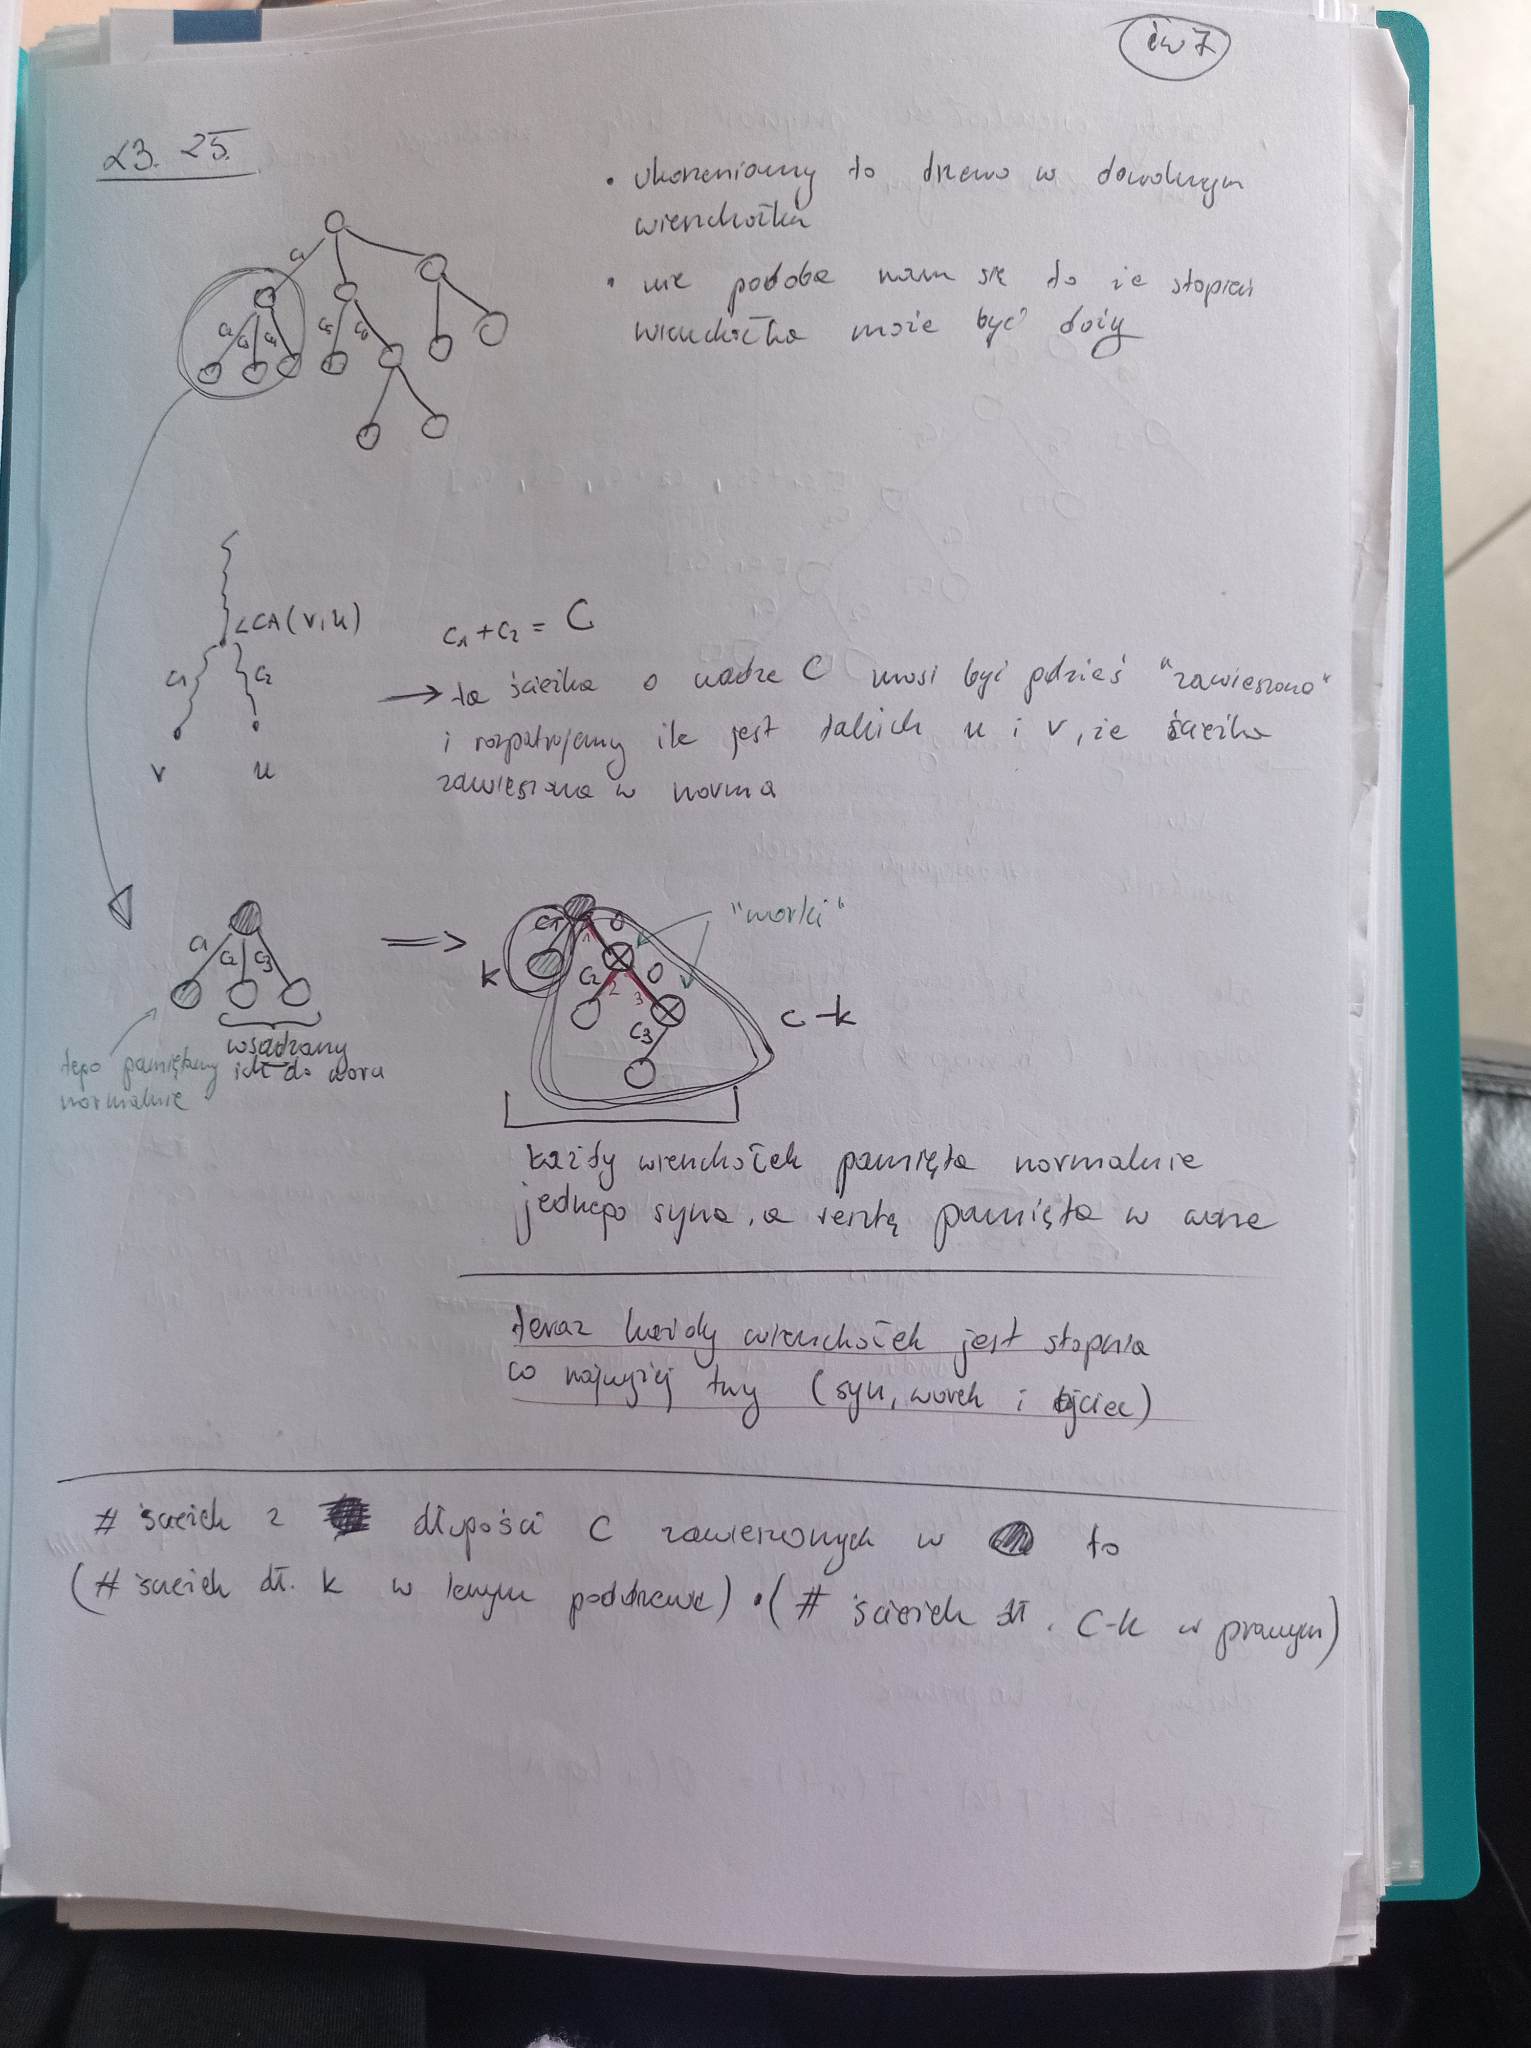 ćw 7
L3. 25.
• ukorzeniamy to drzewo w dowolnym
wierzchołku
• nie podoba nam się to że stopień
wierzchołka może być duży
c₁
c₂ c₃ c₄ c₅ c₆
LCA(v,u)
c₁ c₂
v u
c₁ + c₂ = C
→ ta ścieżka o wadze C musi być gdzieś "zawieszona"
i rozpatrujemy ile jest takich u i v, że ścieżka
zawieszona w
c₁ c₂ c₃
tego pamiętamy
normalnie
wsadzamy
ich do wora
⇒
"worki"
c₁ 0
1
k c₂ 0
2 3
c₃
c-k
każdy wierzchołek pamięta normalnie
jednego syna, a resztę pamięta w worze
teraz każdy wierzchołek jest stopnia
co najwyżej trzy (syn, worek i ojciec)
# ścieżek z długości C zawieszonych w to
(# ścieżek dł. k w lewym poddrzewie) • (# ścieżek dł. C-k w prawym)